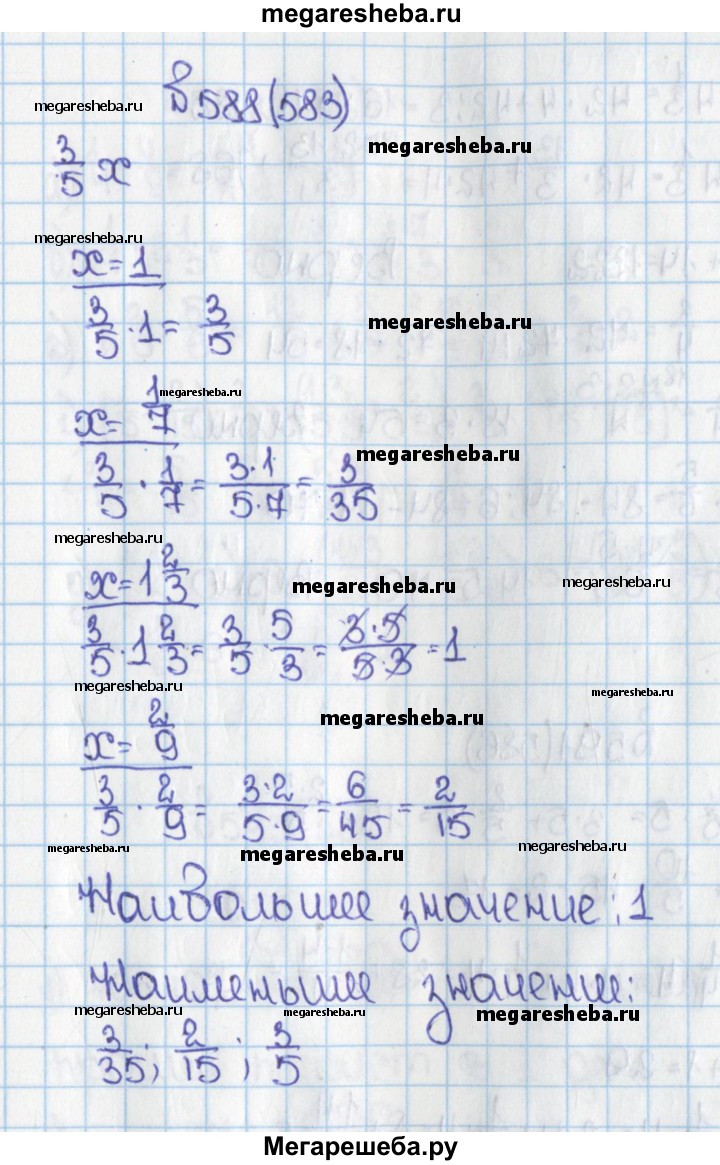 megaresheba.ru
№ 588 (583)
megaresheba.ru
megaresheba.ru
3/5 x
megaresheba.ru
x = 1
3/5 · 1 = 3/5
megaresheba.ru
megaresheba.ru
x = 1/7
megaresheba.ru
3/5 · 1/7 = 3·1/5·7 = 3/35
megaresheba.ru
x = 1 2/3
megaresheba.ru
megaresheba.ru
3/5 · 1 2/3 = 3/5 · 5/3 = 3·5/5·3 = 1
megaresheba.ru
megaresheba.ru
megaresheba.ru
x = 2/9
3/5 · 2/9 = 3·2/5·9 = 6/45 = 2/15
megaresheba.ru
megaresheba.ru
megaresheba.ru
Наибольшее значение: 1
Наименьшее значение:
megaresheba.ru
megaresheba.ru
megaresheba.ru
3/35; 2/15; 3/5
Мегарешеба.ру